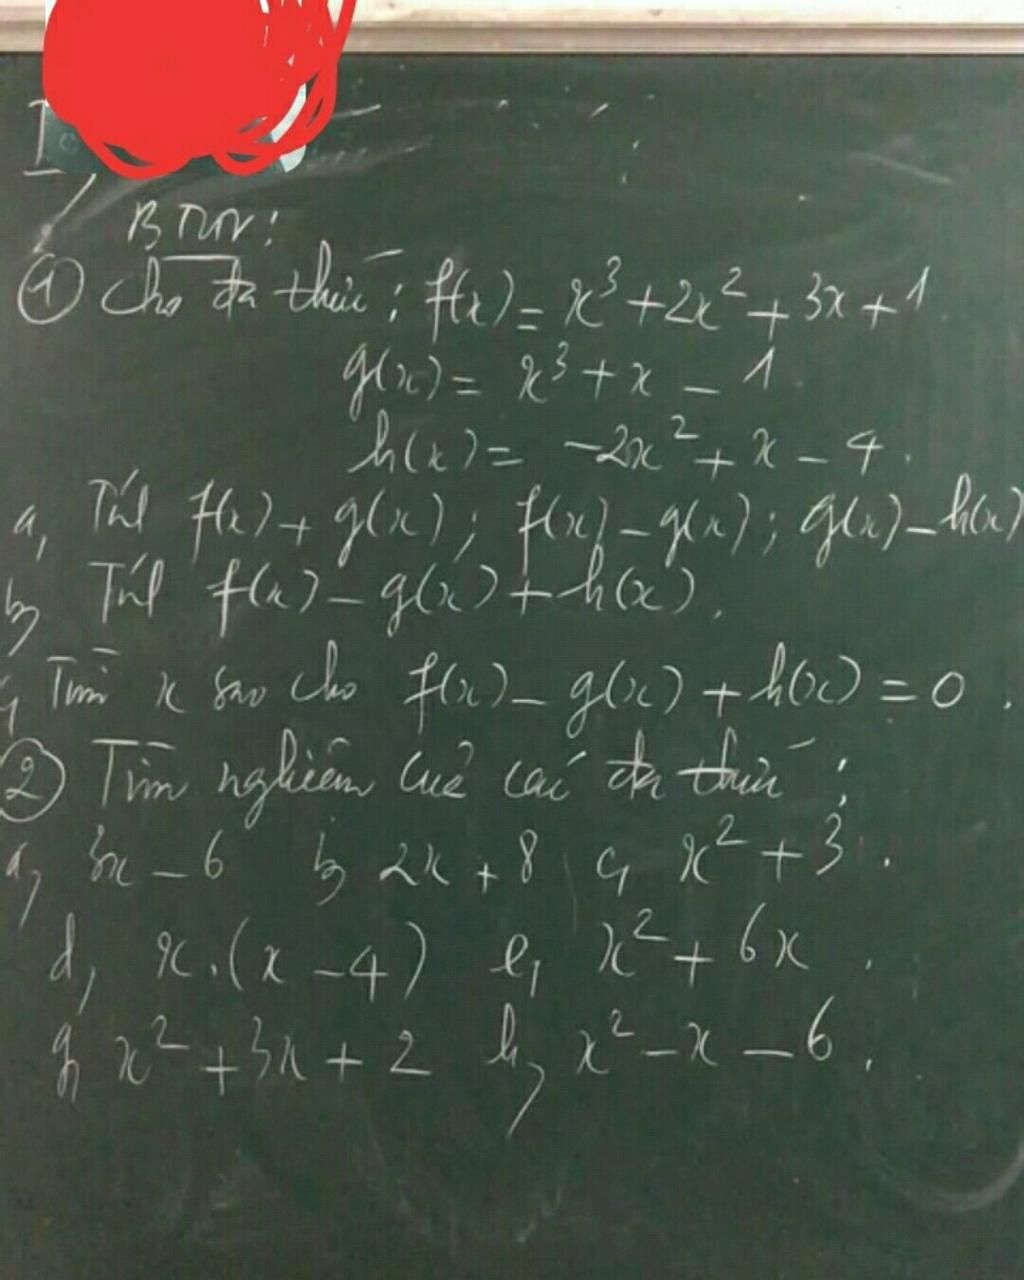 BTVN:
① Cho đa thức: f(x) = x³ + 2x² + 3x + 1
g(x) = x³ + x - 1
h(x) = -2x² + x - 4.
a, Tính f(x) + g(x); f(x) - g(x); g(x) - h(x)
b, Tính f(x) - g(x) + h(x).
c, Tìm x sao cho f(x) - g(x) + h(x) = 0.
② Tìm nghiệm của các đa thức:
a, 3x - 6 b, 2x + 8 c, x² + 3.
d, x.(x - 4) e, x² + 6x.
g, x² + 3x + 2 h, x² - x - 6.